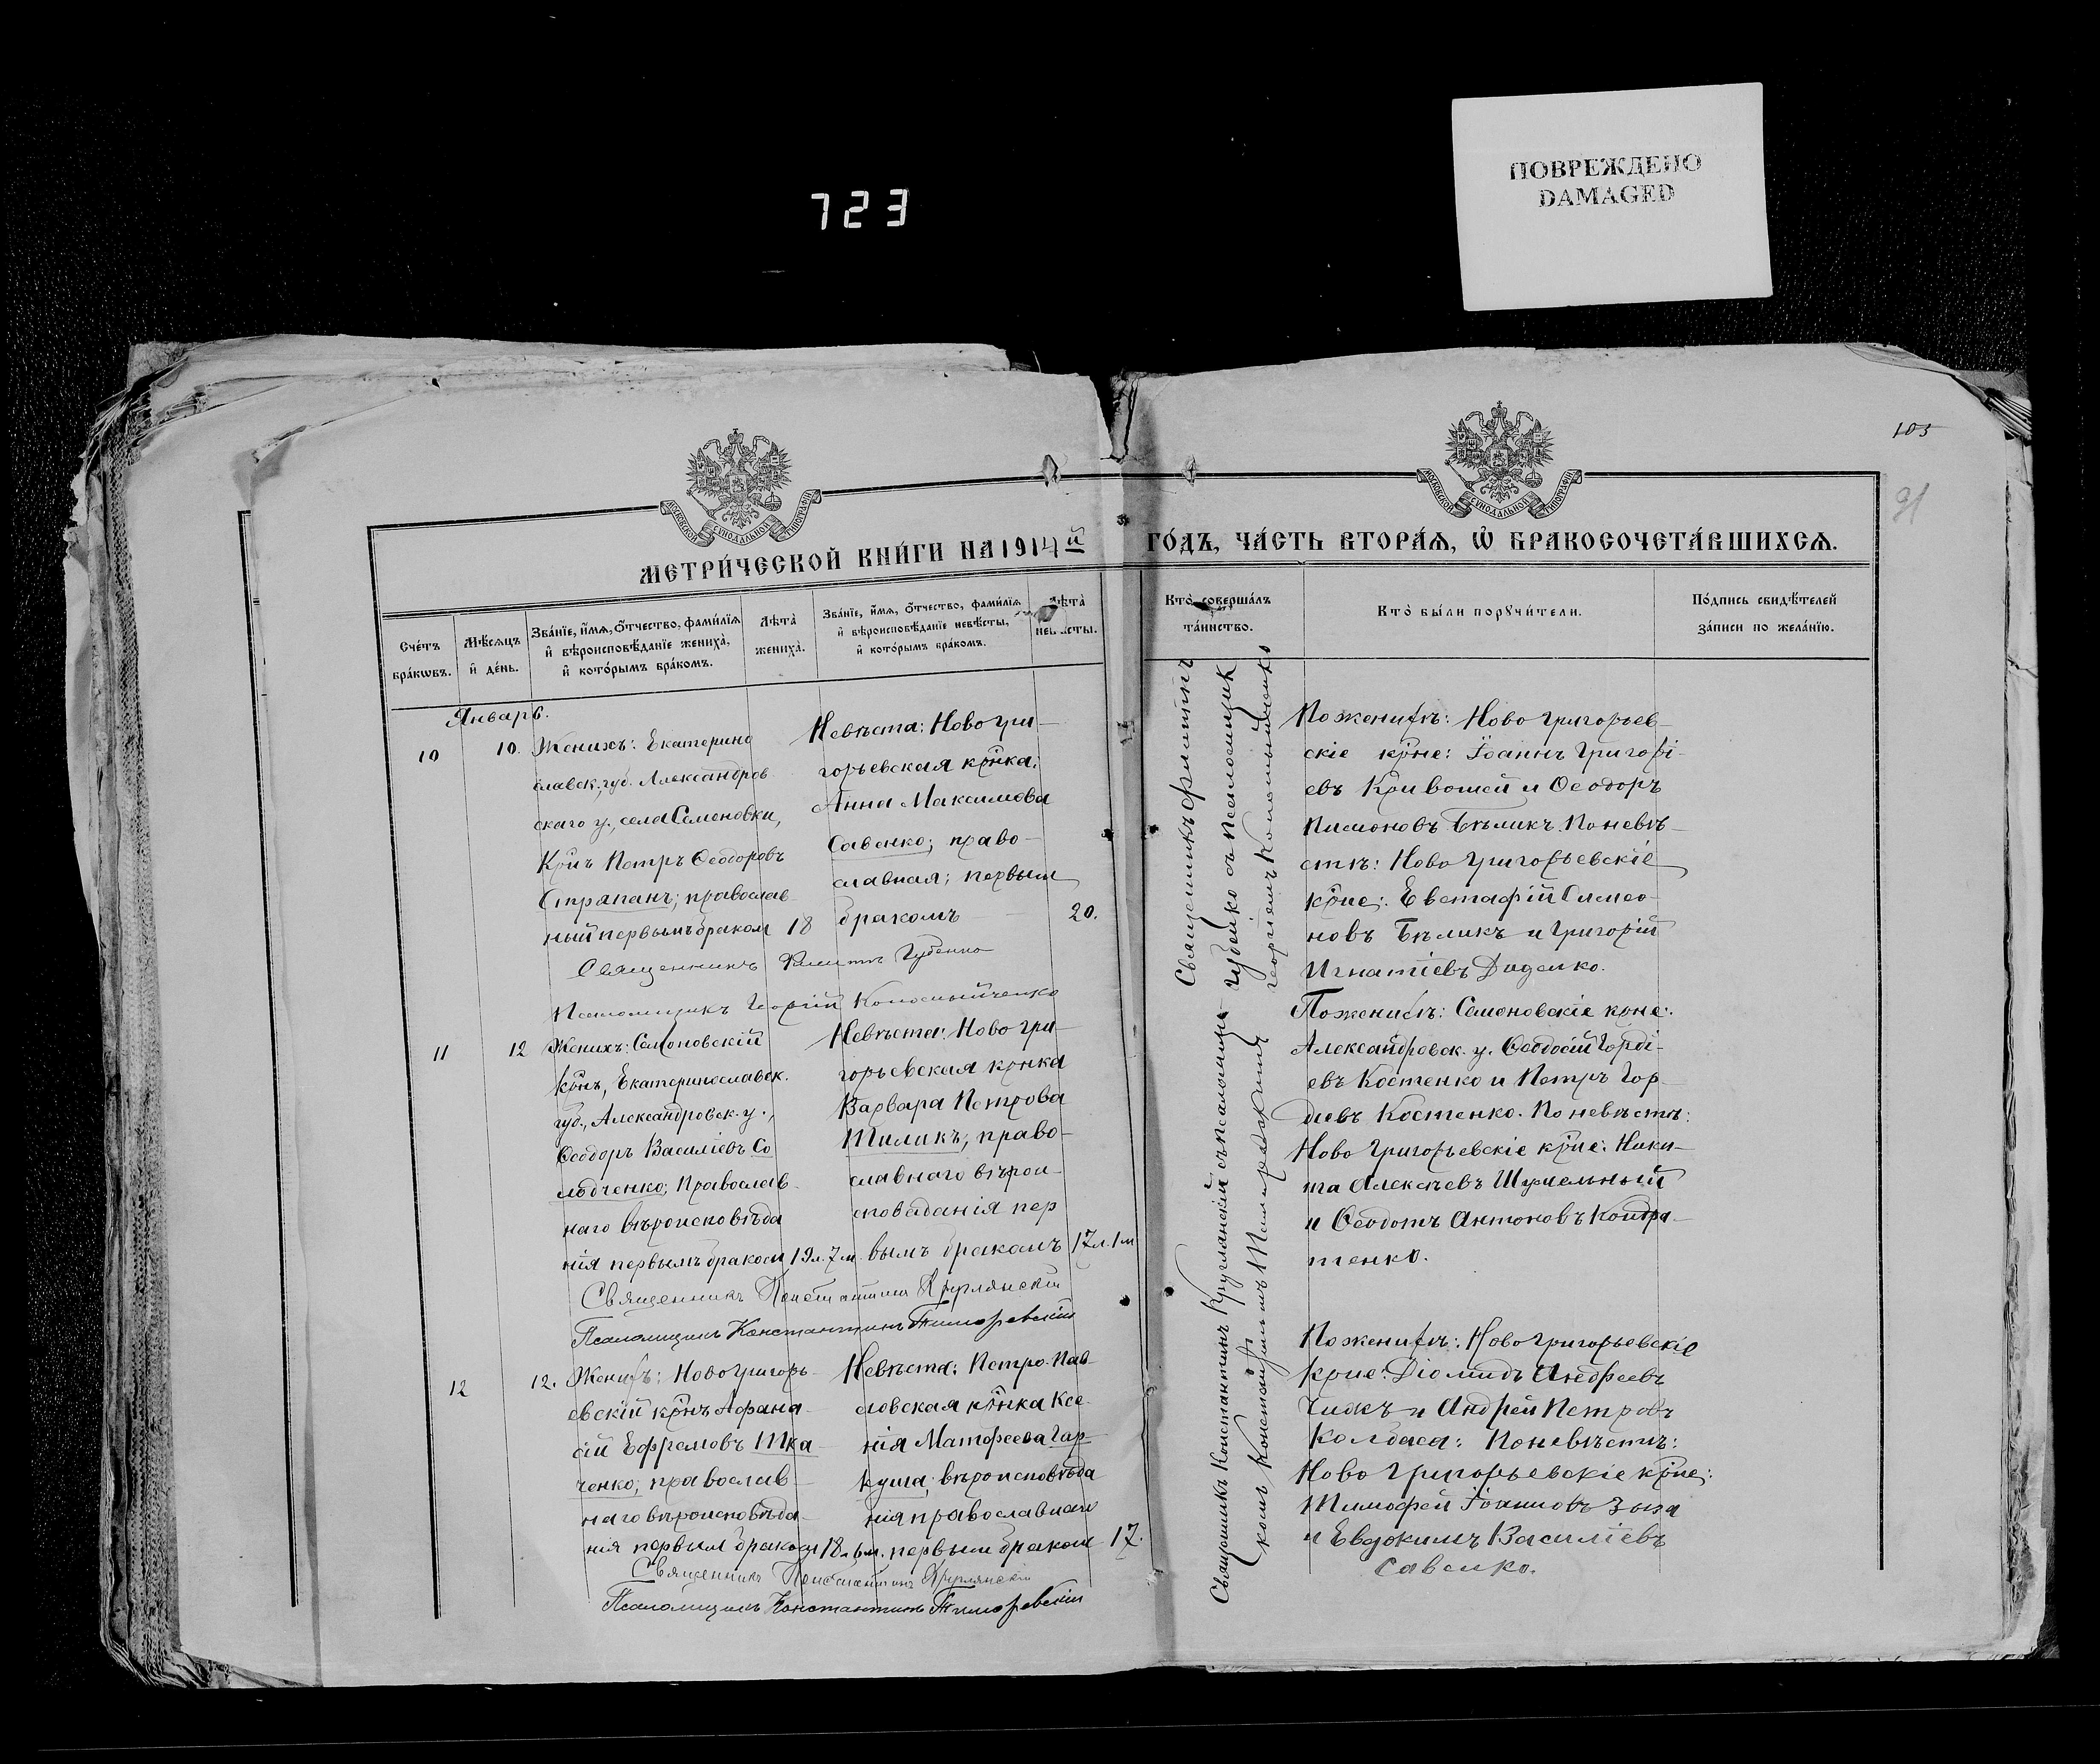 ПОВРЕЖДЕНО
DAMAGED
723
103
91
МЕТРИ́ЧЕСКОЙ КНИ́ГИ НА 1914 й
ГО́ДЪ, ЧА́СТЬ ВТОРА́Ѧ, Ѽ БРАКОСОЧЕТА́ВШИХСѦ.
Сче́тъ бра́кѡвъ.
Мѣ́сѧцъ и҆ де́нь.
Зва́нїе, и҆́мѧ, ѻ҆́тчество, фами́лїѧ
и҆ вѣроисповѣ́данїе жениха̀,
и҆ кото́рымъ бра́комъ.
Лѣта̀
жениха̀.
Зва́нїе, и҆́мѧ, ѻ҆́тчество, фами́лїѧ
и҆ вѣроисповѣ́данїе невѣ́сты,
и҆ кото́рымъ бра́комъ.
Лѣта̀
невѣсты.
Кто̀ соверша́лъ
та́инство.
Кто̀ бы́ли порꙋчи́тели.
По́дпись свидѣ́телей
за́писи по жела́нїю.
Январь.
10
10.
Женихъ: Екатерино
славск. губ. Александров
скаго у., села Семеновки,
крнъ Петръ Ѳеодоровъ
Стряпанъ; православ
ный первымъ браком 18
Невѣста: Ново Гри-
горьевская крнка:
Анна Максимова
Савенко; право-
славная; первым
бракомъ 20.
Священникъ Филиппъ Губенко
Псаломщикъ Георгій
По женихѣ: Ново Григорьев-
скіе крне: Іоаннъ Григорі-
евъ Кривошей и Ѳеодоръ
Пимоновъ Бѣликъ. По невѣ-
стѣ: Ново Григорьевскіе
крне: Евстафій Симео-
новъ Бѣликъ и Григорій
Игнатіевъ Диденко.
11
12
Женихъ: Семеновскій
крнъ, Екатеринославск.
губ., Александровск. у.,
Ѳеодоръ Василіевъ Со
лодченко; Православ-
наго вѣроисповѣда
нія первымъ браком 19 л. 7 м.
Невѣста: Ново Гри-
горьевская крнка
Варвара Петрова
Шиликъ; право-
славнаго вѣрои-
сповѣданія пер
вымъ бракомъ 17 л. 1 м
Священникъ Константинъ Круглянскій
Псаломщикъ Константинъ
По женихѣ: Семеновскіе крне:
Александровск. у. Ѳеодосій Горді-
евъ Костенко и Петръ Гор-
діевъ Костенко. По невѣстѣ:
Ново Григорьевскіе крне: Ники-
та Алексѣевъ
и Ѳеодотъ Антоновъ Кондра-
тенко.
12
12.
Женихъ: Ново Григорь-
евскій крнъ Афана-
сій Ефремовъ Тка-
ченко; православ-
наго вѣроисповѣда-
нія первым браком 18 л. 6 м.
Невѣста: Петро-Пав-
ловская крнка Ксе-
нія Матфеева Гар-
куша; вѣроисповѣда
нія православнаго
первым браком 17.
Священникъ Константинъ Круглянскій
Псаломщикъ Константинъ
По женихѣ: Ново Григорьевскіе
крне: Діомидъ Андреевъ
Чижъ и Андрей Петровъ
Колбаса: По невѣстѣ:
Ново Григорьевскіе крне:
Тимофей Іоанновъ Зоза
и Евдокимъ Василіевъ
Савенко.
Священникъ Филиппъ
Губенко съ псаломщик
Георгіемъ
Священникъ Константинъ Круглянскій съ псаломщи-
комъ Константиномъ